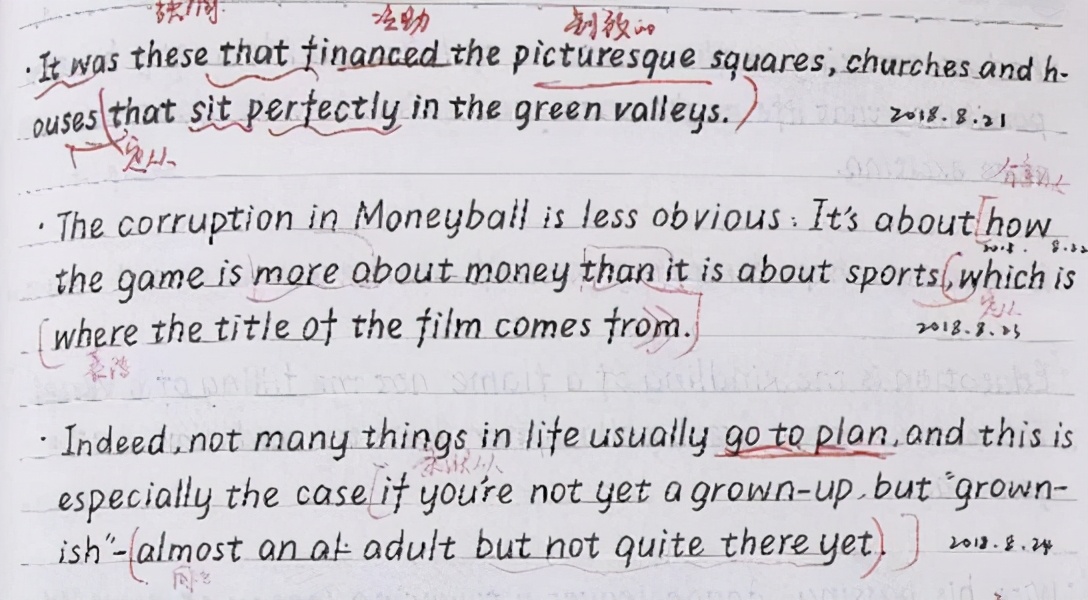 资助
·It was these that financed the picturesque squares, churches and h-
ouses that sit perfectly in the green valleys. 2018.8.21
定从
·The corruption in Moneyball is less obvious: It's about how
2018. 8.22
the game is more about money than it is about sports, which is
定从
where the title of the film comes from. 2018.8.23
表语
·Indeed, not many things in life usually go to plan, and this is
especially the case if you're not yet a grown-up, but "grown-
ish"-(almost an at adult but not quite there yet). 2018.8.24
同位